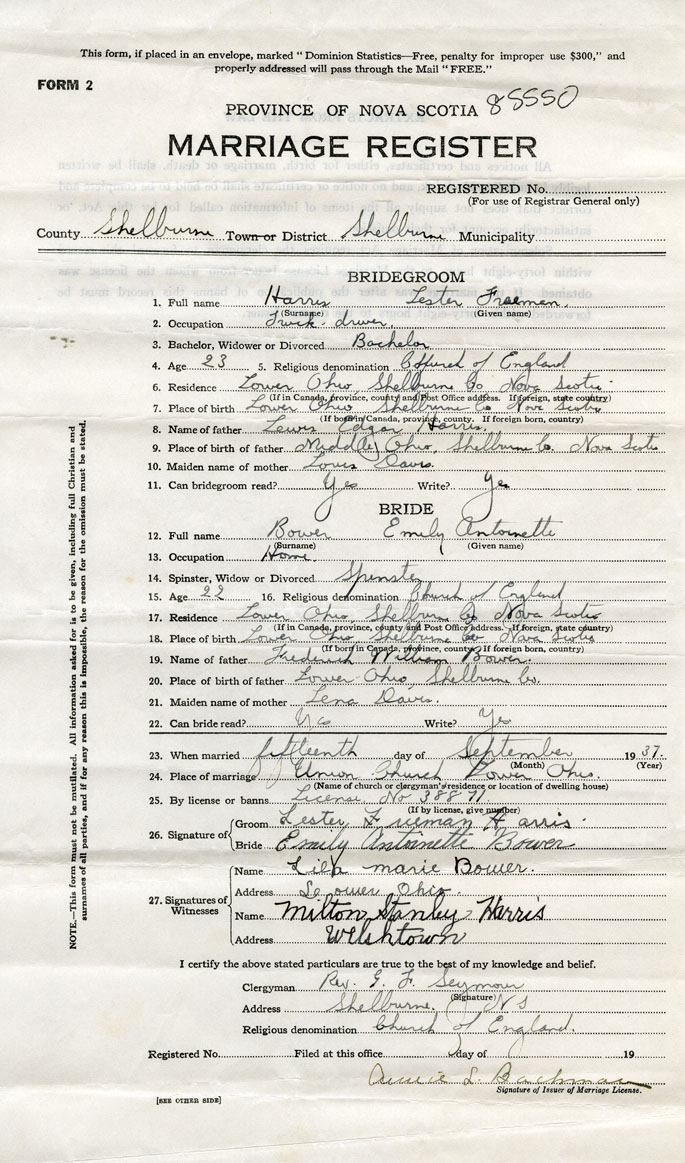 This form, if placed in an envelope, marked "Dominion Statistics—Free, penalty for improper use $300," and
properly addressed will pass through the Mail "FREE."
FORM 2
PROVINCE OF NOVA SCOTIA 85550
MARRIAGE REGISTER
REGISTERED No.
(For use of Registrar General only)
County Shelburne Town or District Shelburne Municipality
BRIDEGROOM
1. Full name Harris Lester Freeman.
(Surname) (Given name)
2. Occupation Truck-driver.
3. Bachelor, Widower or Divorced Bachelor
4. Age 23 5. Religious denomination Church of England
6. Residence Lower Ohio, Shelburne Co Nova Scotia
(If in Canada, province, county and Post Office address. If foreign, state country)
7. Place of birth Lower Ohio Shelburne Co Nova Scotia
(If born in Canada, province, county. If foreign born, country)
8. Name of father Lewis Edgar Harris.
9. Place of birth of father Middle Ohio, Shelburne Co. Nova Scotia
10. Maiden name of mother Davis.
11. Can bridegroom read? Yes Write? Yes
BRIDE
12. Full name Bower Emily Antoinette
(Surname) (Given name)
13. Occupation Home.
14. Spinster, Widow or Divorced Spinster
15. Age 22 16. Religious denomination Church of England
17. Residence Lower Ohio, Shelburne Co Nova Scotia
(If in Canada, province, county and Post Office address. If foreign, state country)
18. Place of birth Lower Ohio Shelburne Co Nova Scotia
(If born in Canada, province, county. If foreign born, country)
19. Name of father Frederick William Bower.
20. Place of birth of father Lower Ohio, Shelburne Co.
21. Maiden name of mother Lena Davis.
22. Can bride read? Yes Write? Yes
23. When married fifteenth day of September 1937.
(Month) (Year)
24. Place of marriage Union Church Lower Ohio.
(Name of church or clergyman's residence or location of dwelling house)
25. By license or banns License No 38871
(If by license, give number)
26. Signature of
Groom Lester Freeman Harris.
Bride Emily Antoinette Bower
27. Signatures of Witnesses
Name Lila marie Bower.
Address Lower Ohio.
Name Milton Stanley Harris
Address Welshtown
I certify the above stated particulars are true to the best of my knowledge and belief.
Clergyman Rev. G. F. Seymour
(Signature)
Address Shelburne, N S
Religious denomination Church of England.
Registered No. Filed at this office day of 19
Annie L. Bachman
Signature of Issuer of Marriage License.
[SEE OTHER SIDE]
NOTE.—This form must not be mutilated. All information asked for is to be given, including full Christian and
surnames of all parties, and if for any reason this is impossible, the reason for the omission must be stated.